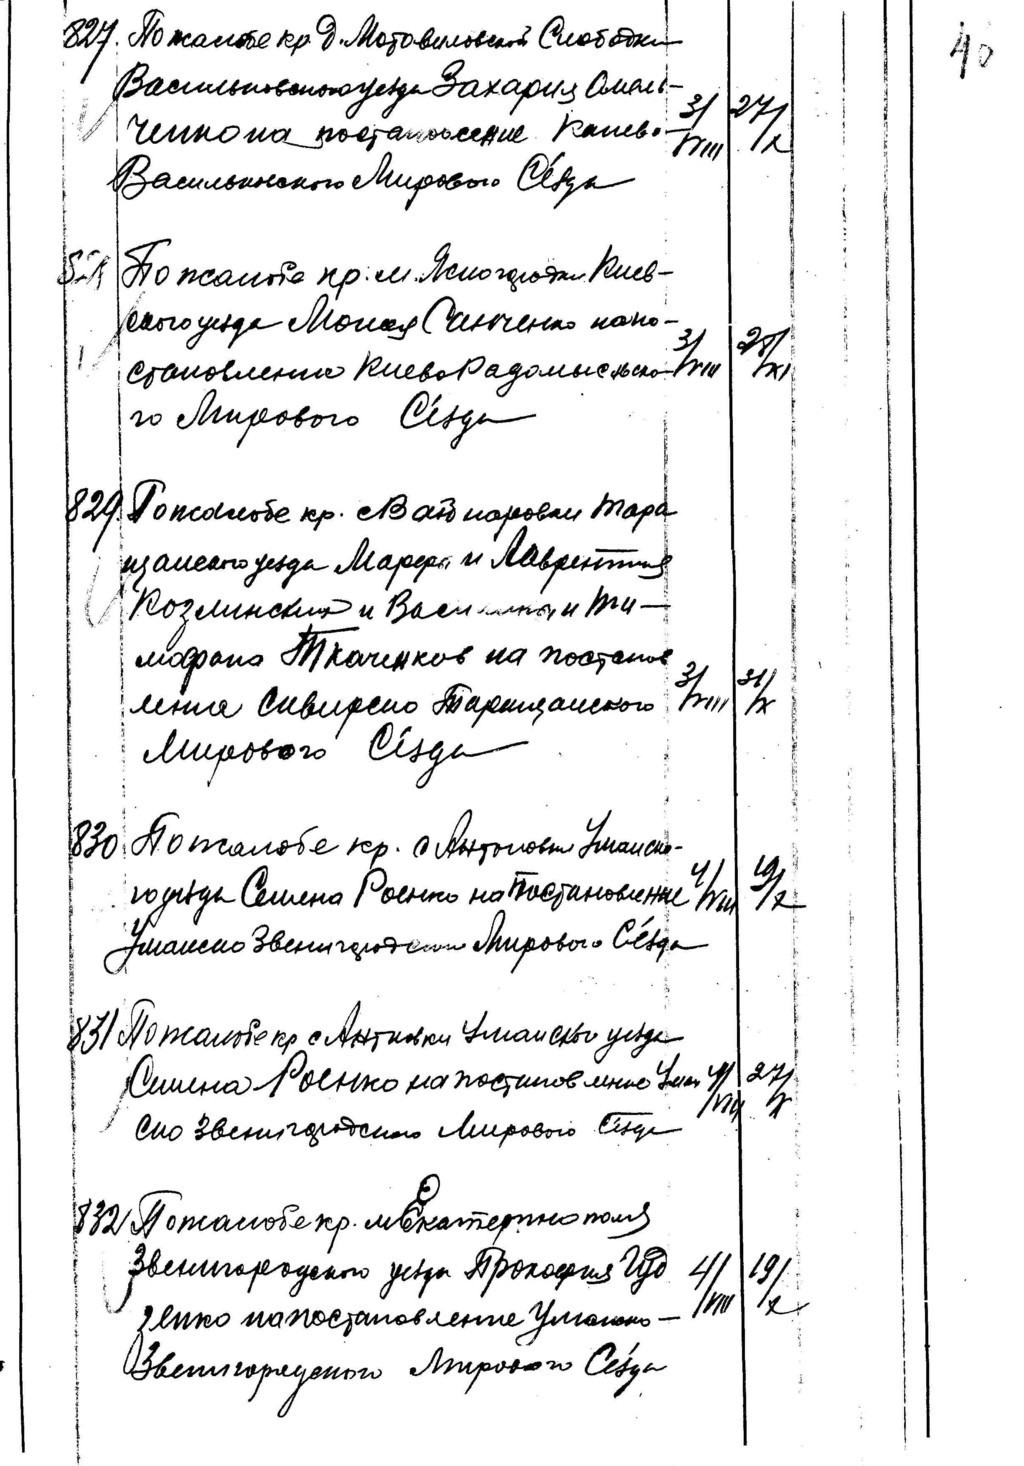 40
827. По жалобе кр. д. Мотовиловской Слободки
Васильковского уезда Захария Омель-
ченко на постановление Киево- 3/VIII 27/X
Васильковского Мирового Съезда
828 По жалобе кр. м. Ясногородки Киев-
ского уезда Мойсея Сенченко на по-
становление Киево Радомысльско- 3/VIII 28/XI
го Мирового Съезда
829. По жалобе кр. с Тара
щанского уезда Марфы и Лаврентия
Козлинских и и Ти-
мофана Ткаченков на постанов
ление Сквирско Таращанского 3/VIII 31/X
Мирового Съезда
830 По жалобе кр. с Антоновки Уманско-
го уезда Семена Роенко на постановление 4/VIII 19/X
Уманско Звенигородского Мирового Съезда
831 По жалобе кр с Антоновки Уманского уезда
Семена Роенко на постановление Уман 4/VIII 27/X
ско Звенигородского Мирового Съезда
832 По жалобе кр. м Екатеринополя
Звенигородского уезда Прокофия Гуд 4/VIII 19/X
зенко на постановление Уманско-
Звенигородского Мирового Съезда